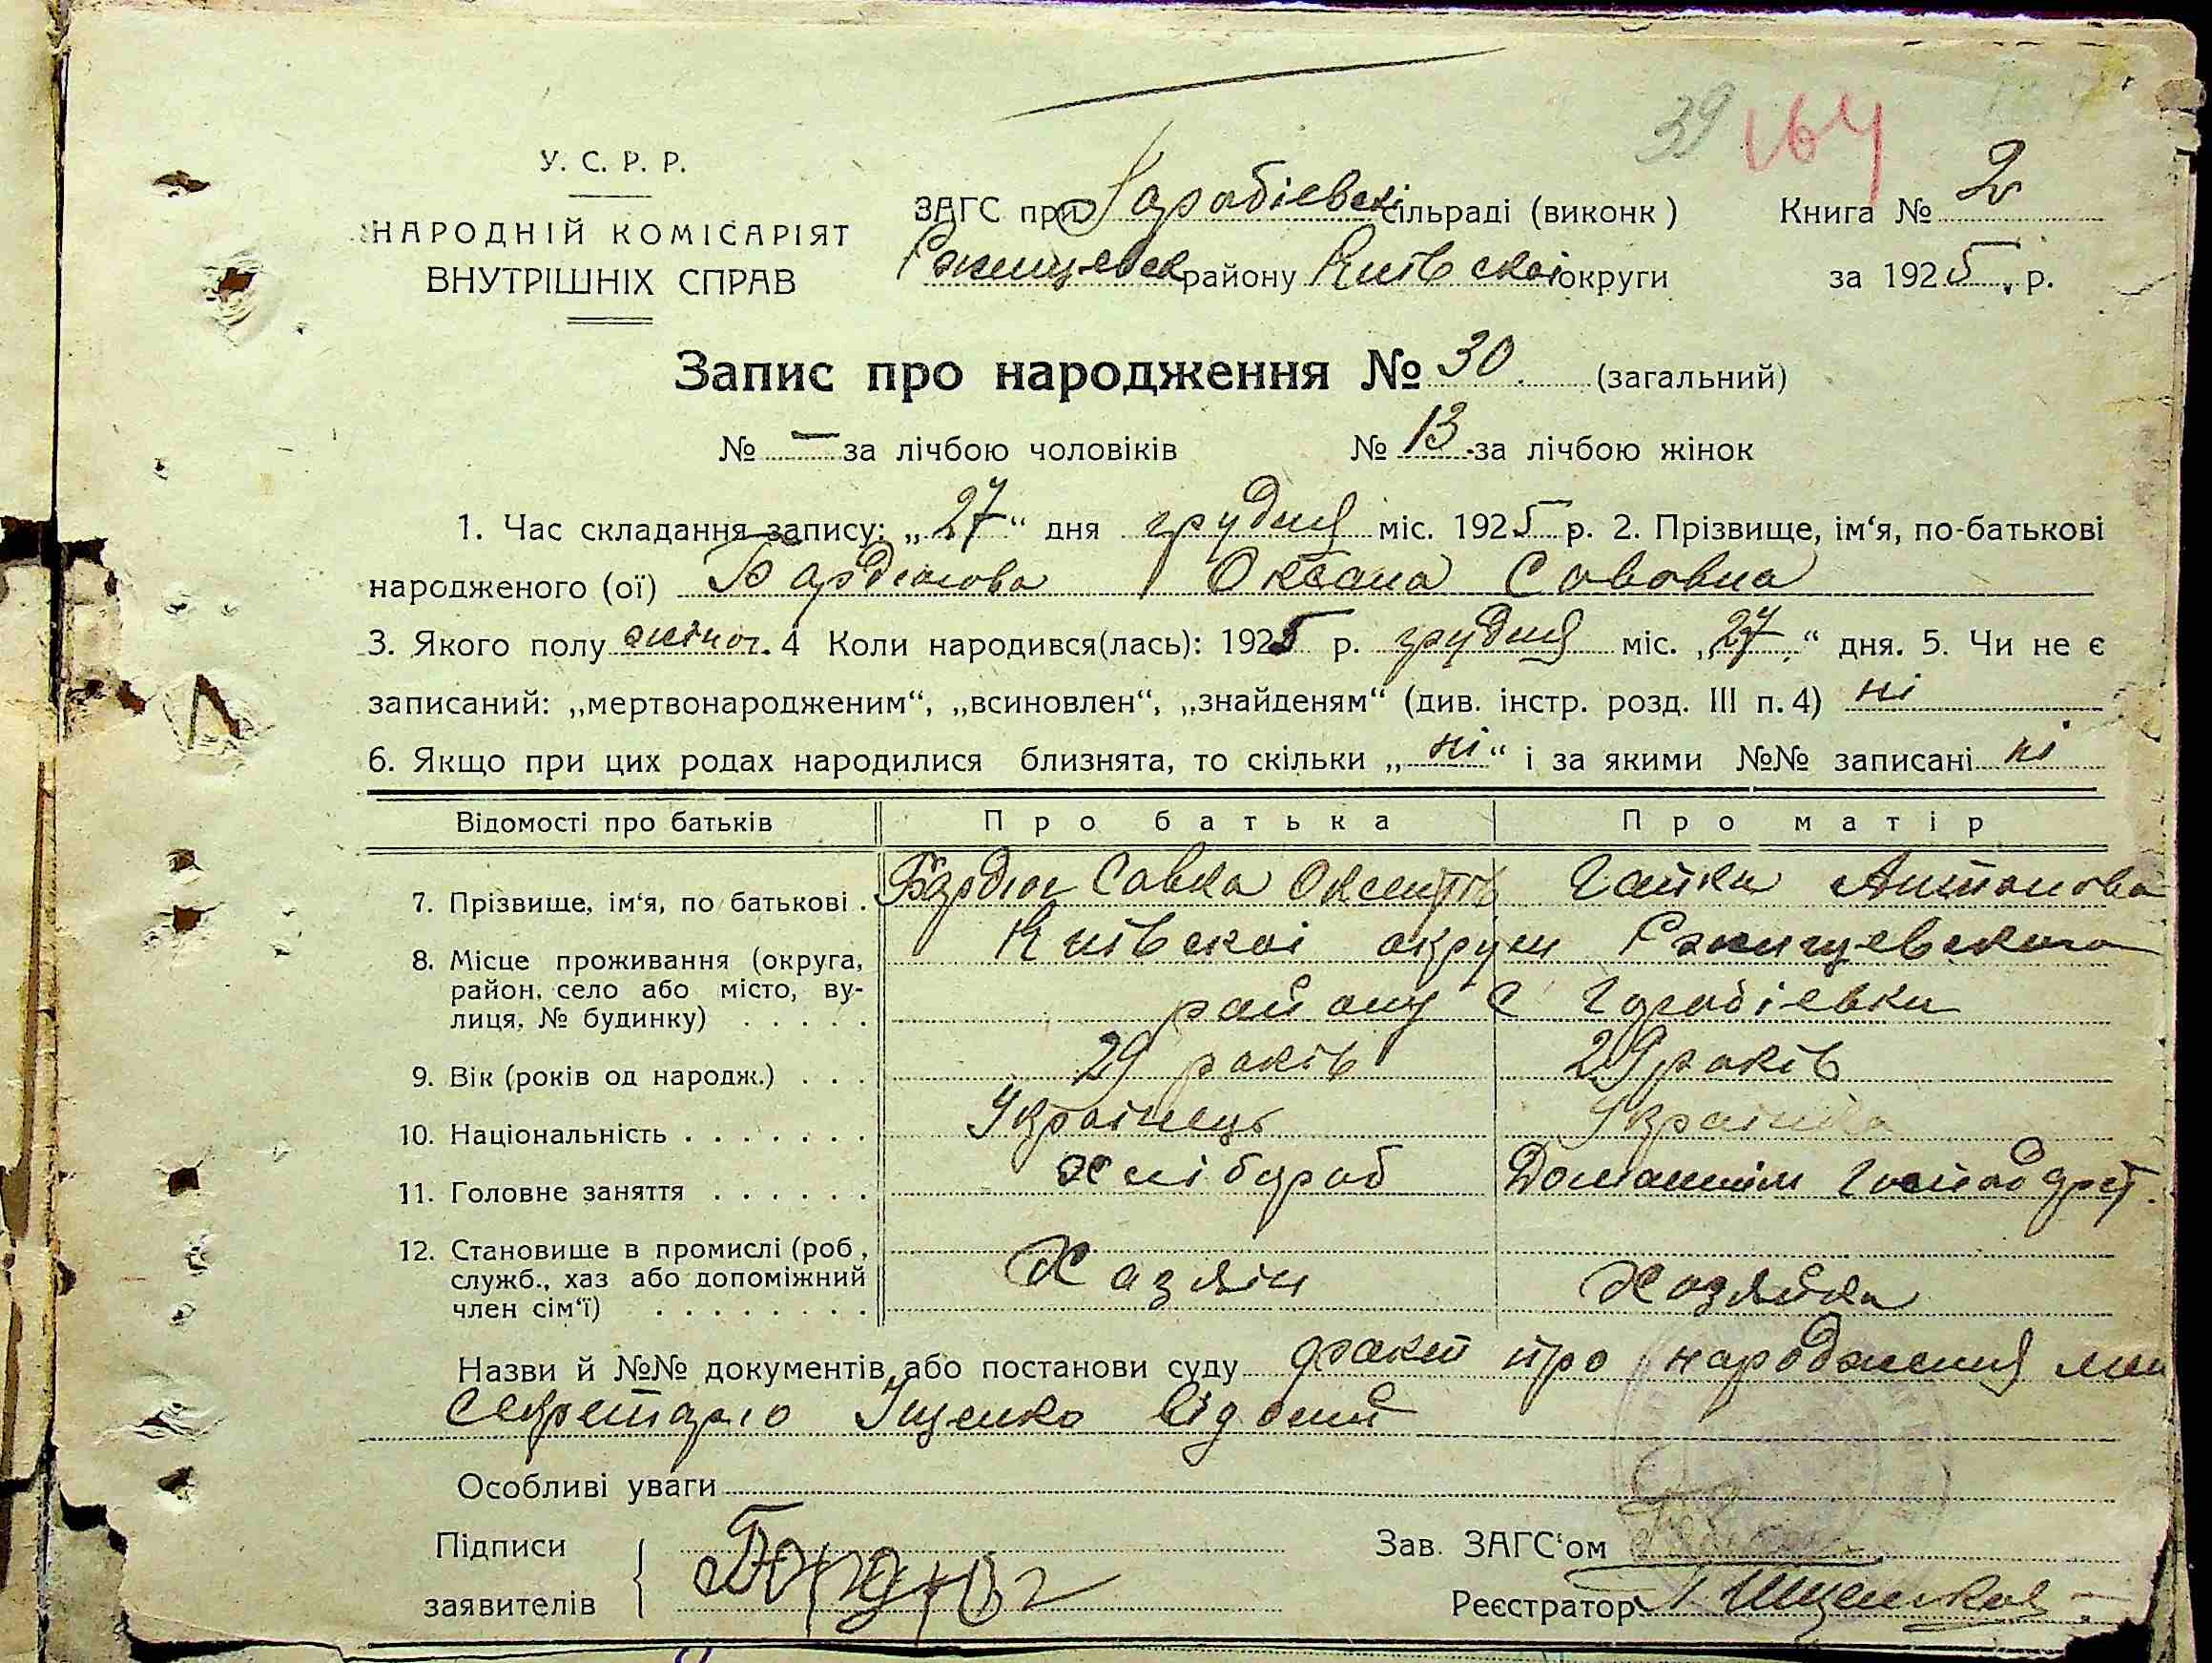 39 164
У. С. Р. Р.
НАРОДНІЙ КОМІСАРІЯТ
ВНУТРІШНІХ СПРАВ
ЗАГС при Горобіевскі сільраді (виконк) Книга № 2
Ржищевск району Київскоі округи за 1925 р.
Запис про народження № 30 (загальний)
№ — за лічбою чоловіків № 13 за лічбою жінок
1. Час складання запису: „27“ дня грудня міс. 1925 р. 2. Прізвище, ім‘я, по-батькові
народженого (ої) Бардюгова Оксана Сововна
3. Якого полу жіноч. 4 Коли народився(лась): 1925 р. грудня міс. „27“ дня. 5. Чи не є
записаний: „мертвонародженим“, „всиновлен“, „знайденям“ (див. інстр. розд. III п. 4) ні
6. Якщо при цих родах народилися близнята, то скільки „ні“ і за якими №№ записані ні
Відомості про батьків Про батька Про матір
7. Прізвище, ім‘я, по батькові . Бардюг Савка Оксентів Гапка Антонова
8. Місце проживання (округа, Київскоі округи Ржищевского
район, село або місто, ву-
лиця, № будинку) . . . . . району с Горобіевки
9. Вік (років од народж.) . . . 29 років 29 років
10. Національність . . . . . . . Украінець Украінка
11. Головне заняття . . . . . . Хлібороб Домашнім господрст.
12. Становище в промислі (роб,
служб., хаз або допоміжний Хазяін Хозяйка
член сім‘ї) . . . . . . . .
Назви й №№ документів або постанови суду факт про народження мен
секретарю Іщенко відомий
Особливі уваги
Підписи Зав. ЗАГС‘ом
заявителів Бардюг Реєстратор Іщенко